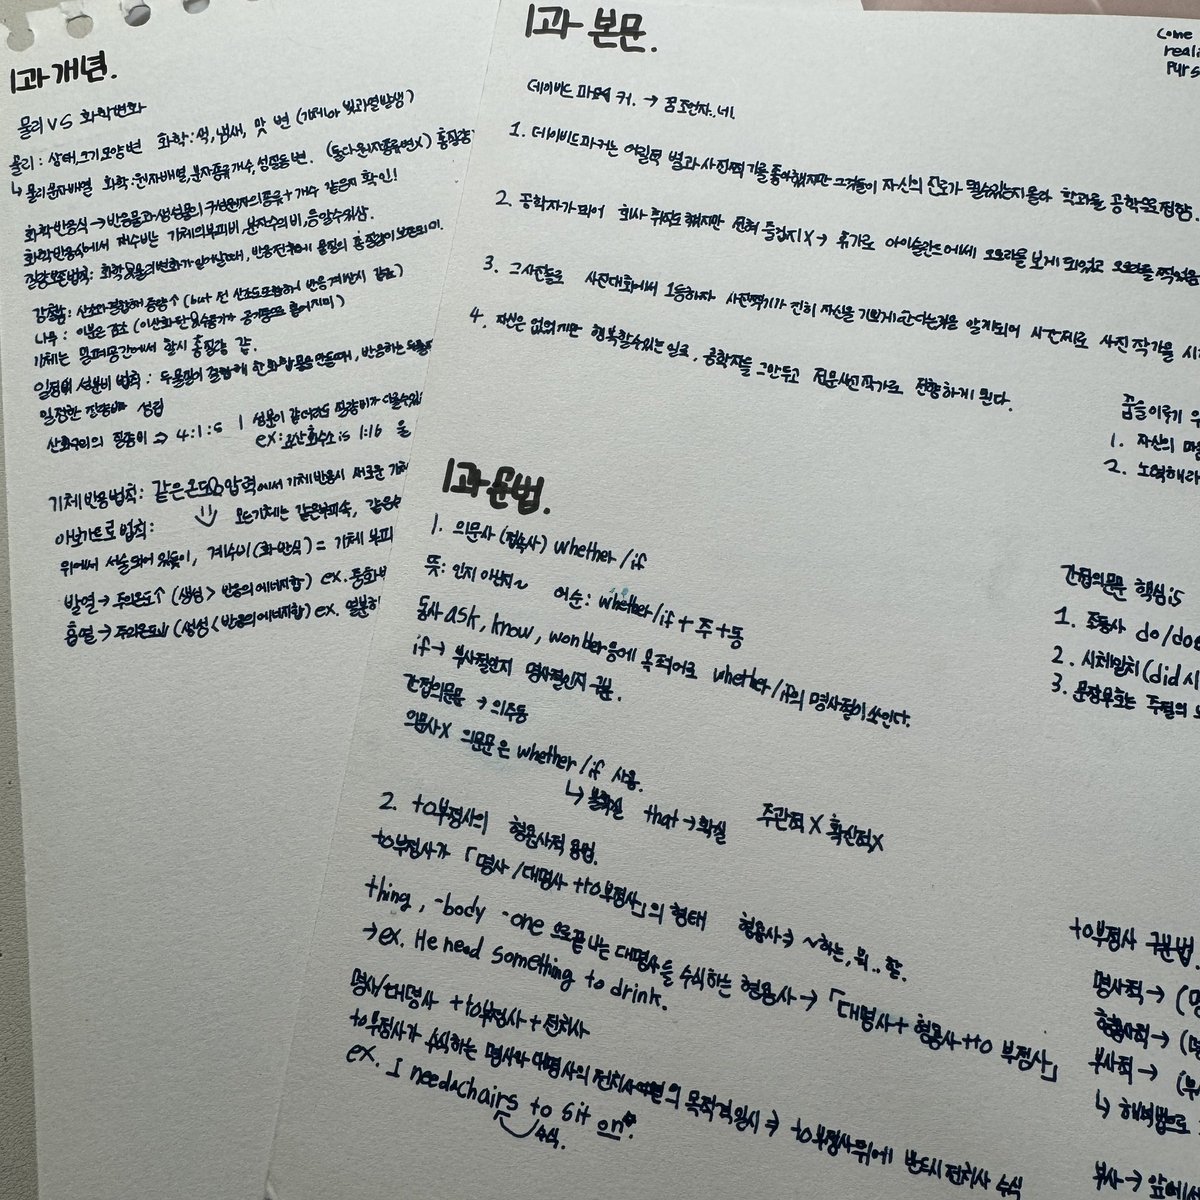 1과 개념.
물리 VS 화학변화
물리: 상태,크기,모양 변 화학:색,냄새, 맛 변 (기체나 빛과 열 발생)
↳ 물리:분자배열 화학:원자배열,분자종류개수,성질등 변. (둘다 원자종류변X) 총질량
화학반응식→반응물과 생성물의 구성원자의 종류+개수 같은지 확인!
화학반응식에서 계수비는 기체의 부피비, 분자수의 비,를 알수있삼.
질량보존법칙: 화학및물리변화가 일어날때, 반응 전후에 물질의 총질량이 보존되미.
강철솜: 산소와결합해 증량↑(but 전 산소도포함하여 반응계산시 같음)
나무 : 이분은 감소 (이산화탄소,수증기가 공기중으로 흩어지미)
기체는 밀폐공간에서 할시 총질량 같.
일정성분비 법칙: 두물질이 결합해 한 화합물을 만들때, 반응하는
일정한 질량비 성립
산화구리의 질량비 ⇒ 4:1:5 | 성분이 같더라도 질량비가 다를수있
ex:과산화수소 is 1:16 물
기체 반응 법칙: 같은 온도와 압력에서 기체반응시 새로운 기체
아보가드로 법칙: 모든기체는 같은부피속, 같은
위에서 서술되어 있듯이, 계수비(화반식) = 기체 부피
발열→주위온도↑ (생성 > 반응의 에너지합) ex. 중화
흡열→주위온도↓ (생성 < 반응의 에너지합) ex. 열분해
1과 본문.
데이비드 파커 → 꿈조언자.네.
1. 데이비드파커는 어릴적 별과사진찍기를 좋아했지만 그것들이 자신의 진로가 될수있는지 몰라 학과를 공학으로 정함.
2. 공학자가 되어 회사 취직도 했지만 전혀 즐겁지X → 휴가로 아이슬란드에서 오로라를 보게 되었고 오로라를 찍었음
3. 그사진들로 사진대회에서 1등하자 사진찍기가 진히 자신을 기쁘게한다는것을 알게되어 시간제로 사진 작가를 시
4. 자신은 없었지만 행복할수있는 일로, 공학자를 그만두고 전문사진작가로 전향하게 된다.
꿈을이루기
1. 자신의 마음
2. 노력해라
1과 문법.
1. 의문사 (접속사) whether/if
뜻: 인지 아닌지~ 어순: whether/if + 주 + 동
동사 ask, know, wonber등에 목적어로 whether/if의 명사절이 쓰인다.
if → 부사절인지 명사절인지 구분.
간접의문문 → 의주동
의문사X 의문문은 whether/if 사용.
↳ 불확실 that → 확실 주관적X 확신적X
간접의문문 핵심is
1. 조동사 do/doe
2. 시제일치(did 시
3. 문장부호는 주절의
2. to부정사의 형용사적 용법.
to부정사가 「명사/대명사 +to부정사」의 형태 형용사⇒ ~하는, 뭐.. 할.
thing, -body -one 으로끝나는 대명사를 수식하는 형용사 → 「대명사+ 형용사 +to 부정사」
→ex. He need something to drink.
명사/대명사 +to부정사+전치사
to부정사가 수식하는 명사와 대명사의 전치사의 목적격일시 ⇒ to부정사뒤에 반드시 전치사 수식
ex. I need chairs to sit on.
수식.
to부정사 구분법.
명사적→
형용사적→
부사적→
↳ 해석법으로
부사→ 앞에